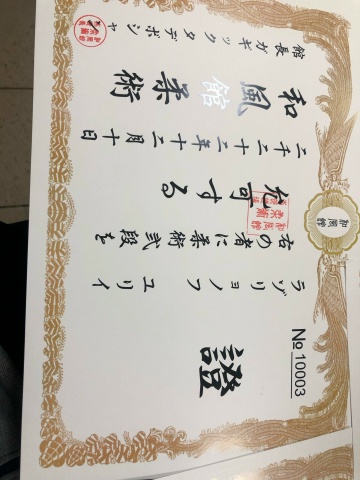 № 10003
和風館
證
ラゾリョノフ ユリイ
右の者に柔術弐段を
允可する
二千二十二年十二月十日
和風館柔術
館長 ガギック タデボシャン